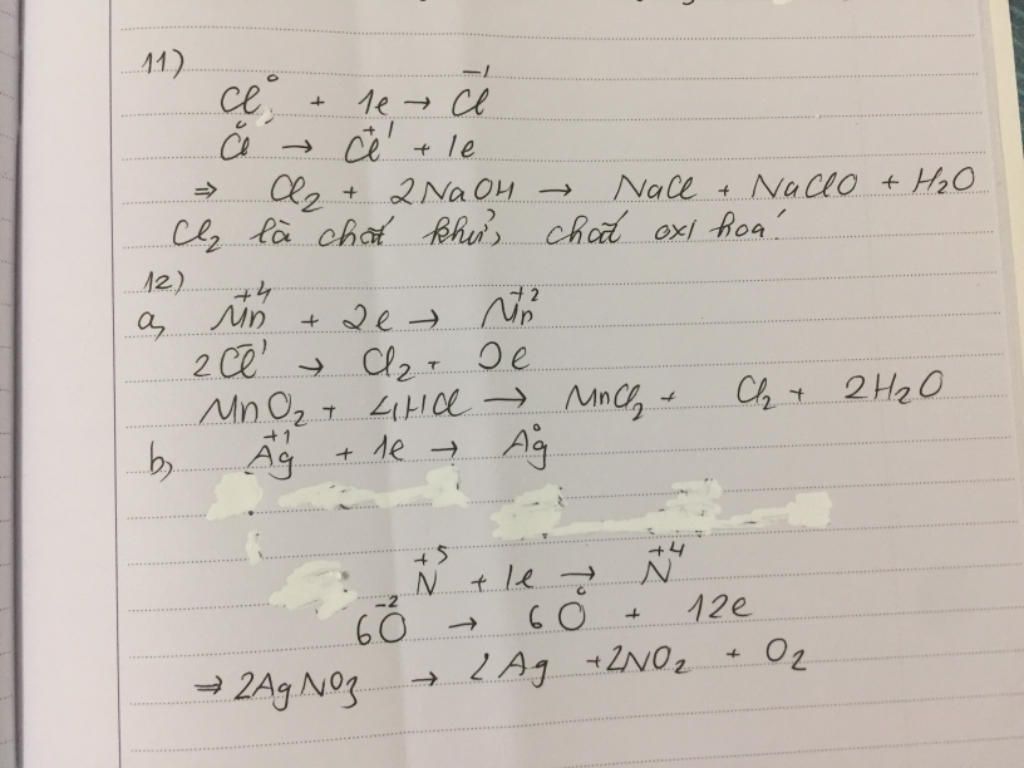 11)
Cl⁰ + 1e → Cl⁻¹
Cl⁰ → Cl⁺¹ + 1e
⇒ Cl₂ + 2NaOH → NaCl + NaClO + H₂O
Cl₂ là chất khử, chất oxi hoá.
12)
a, Mn⁺⁴ + 2e → Mn⁺²
2Cl⁻¹ → Cl₂ + 2e
MnO₂ + 4HCl → MnCl₂ + Cl₂ + 2H₂O
b, Ag⁺¹ + 1e → Ag⁰
N⁺⁵ + 1e → N⁺⁴
6O⁻² → 6O⁰ + 12e
⇒ 2AgNO₃ → 2Ag + 2NO₂ + O₂